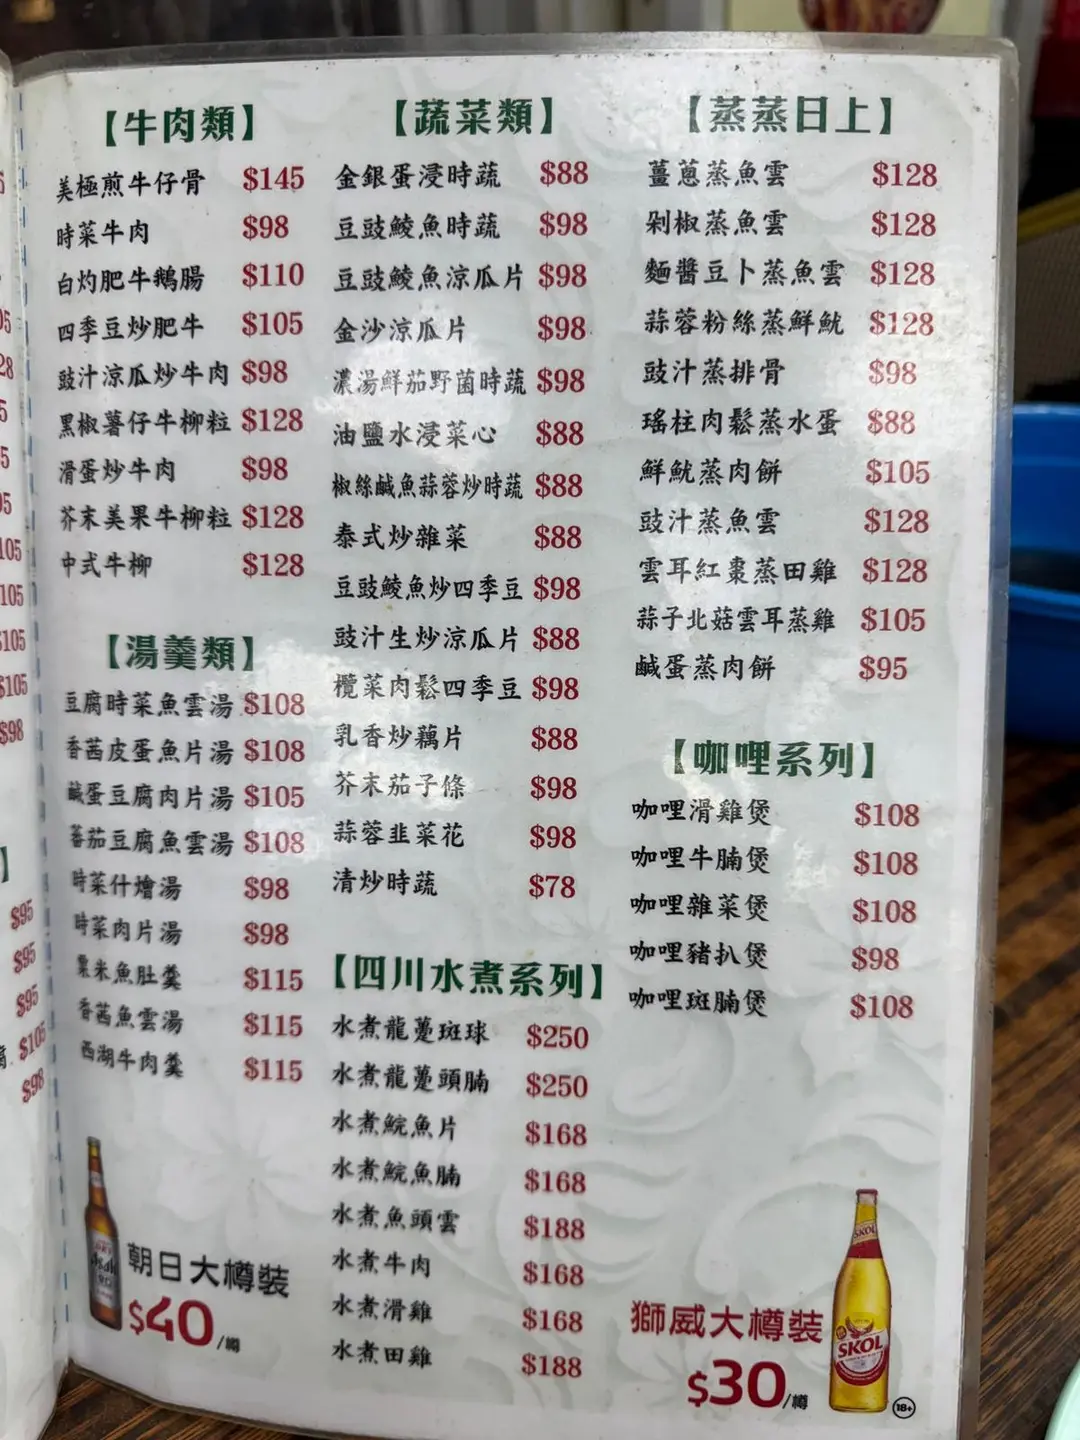 【牛肉類】
美極煎牛仔骨 $145
時菜牛肉 $98
白灼肥牛鵝腸 $110
四季豆炒肥牛 $105
豉汁涼瓜炒牛肉 $98
黑椒薯仔牛柳粒 $128
滑蛋炒牛肉 $98
芥末美果牛柳粒 $128
中式牛柳 $128
【湯羹類】
豆腐時菜魚雲湯 $108
香茜皮蛋魚片湯 $108
鹹蛋豆腐肉片湯 $105
蕃茄豆腐魚雲湯 $108
時菜什燴湯 $98
時菜肉片湯 $98
粟米魚肚羹 $115
香茜魚雲湯 $115
西湖牛肉羹 $115
朝日大樽裝
$40/樽
【蔬菜類】
金銀蛋浸時蔬 $88
豆豉鯪魚時蔬 $98
豆豉鯪魚涼瓜片 $98
金沙涼瓜片 $98
濃湯鮮茄野菌時蔬 $98
油鹽水浸菜心 $88
椒絲鹹魚蒜蓉炒時蔬 $88
泰式炒雜菜 $88
豆豉鯪魚炒四季豆 $98
豉汁生炒涼瓜片 $88
欖菜肉鬆四季豆 $98
乳香炒藕片 $88
芥末茄子條 $98
蒜蓉韭菜花 $98
清炒時蔬 $78
【四川水煮系列】
水煮龍躉斑球 $250
水煮龍躉頭腩 $250
水煮鯇魚片 $168
水煮鯇魚腩 $168
水煮魚頭雲 $188
水煮牛肉 $168
水煮滑雞 $168
水煮田雞 $188
【蒸蒸日上】
薑蔥蒸魚雲 $128
剁椒蒸魚雲 $128
麵醬豆卜蒸魚雲 $128
蒜蓉粉絲蒸鮮魷 $128
豉汁蒸排骨 $98
瑤柱肉鬆蒸水蛋 $88
鮮魷蒸肉餅 $105
豉汁蒸魚雲 $128
雲耳紅棗蒸田雞 $128
蒜子北菇雲耳蒸雞 $105
鹹蛋蒸肉餅 $95
【咖哩系列】
咖哩滑雞煲 $108
咖哩牛腩煲 $108
咖哩雜菜煲 $108
咖哩豬扒煲 $98
咖哩斑腩煲 $108
獅威大樽裝
$30/樽
SKOL
SKOL
18+